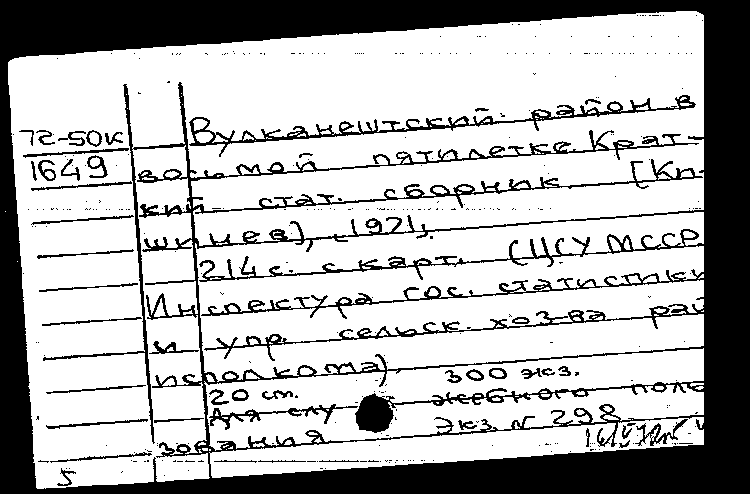 72-50к Вулканештский район в
1649 восьмой пятилетке. Крат-
кий стат. сборник. [Ки-
шинев], [1971].
214 с. с карт. (ЦСУ МССР
Инспектура гос. статистики
и упр. сельск. хоз-ва рай
исполкома).
20 см. 300 экз.
Для служебного поль
зования Экз. № 298
5